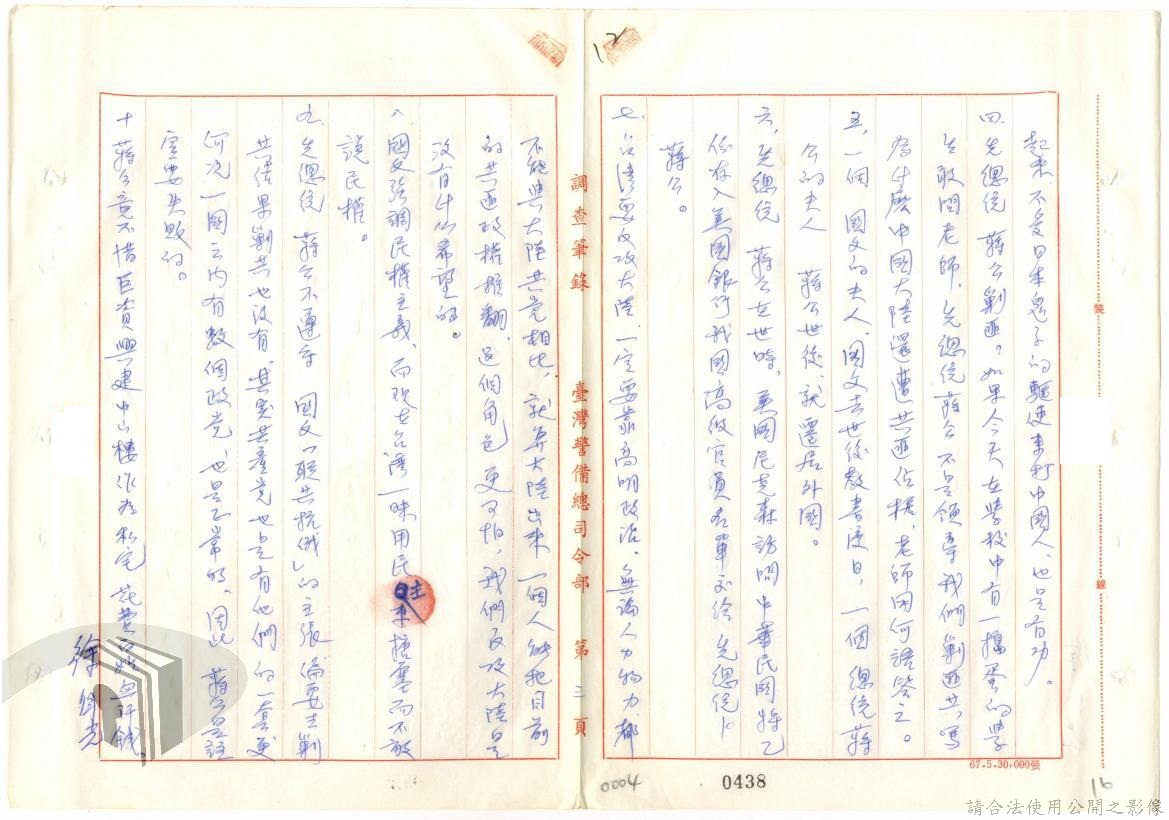 12
起來,不受日本鬼子的驅使來打中國人,也是有功。
四、先總統 蔣公剿匪,如果今天在學校中有一搗蛋的學
生敢問老師,先總統蔣公不是領導我們剿匪共,嗎
為什麼中國大陸還遭共匪佔据,老師因何語答之。
五、一個 國父的夫人、國父去世後教書度日,一個 總統蔣
公的夫人 蔣公世後就遷居外國。
六、先總統 蔣公在世時,美國尼克森訪問中華民國將乙
份存入美國銀行我國高級官員名單交給 先總統
蔣公。
七、台湾要反攻大陸,一定要靠高明政治,無論人力物力,都
不能與大陸共党相比,就算大陸出來一個人能把目前
的共匪政權推翻,這個角色更可怕,我們反攻大陸是
没有什么希望的。
八、國父強調民權主義,而現在台湾一味用民主來搪塞而不敢
說民權。
九、先總統 蔣公不遵守 國父「聯共抗俄」的主張偏要去剿
共結果剿共也没有,其实共產党也是有他們的一套更
何况一國之内有數個政党也是正常的,因此 蔣公是註
定要失敗的。
十、蔣公竟不惜巨資興建中山樓作為私宅花費
調查筆錄 臺灣警備總司令部 第三頁
裝 線
67.5.30,000張
0004
0438
16
請合法使用公開之影像